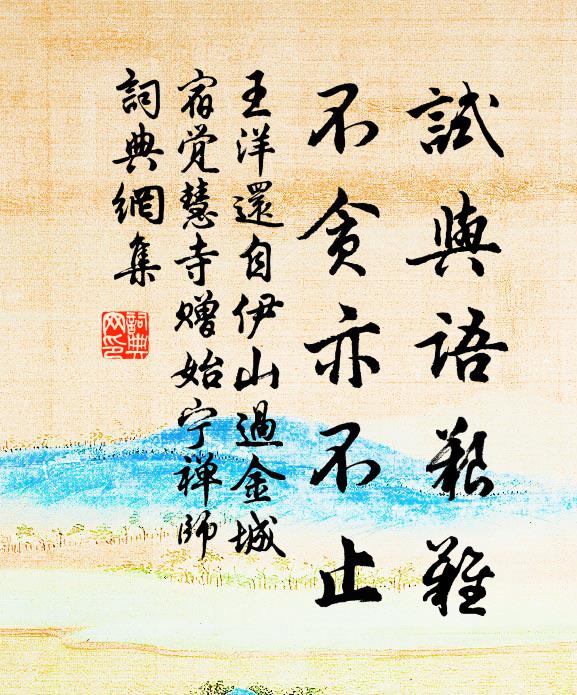 試與語艱難
不貪亦不止
王洋還自伊山過金城
宿覚慧寺赠始宁禅師
詞典網集
詞典
网印